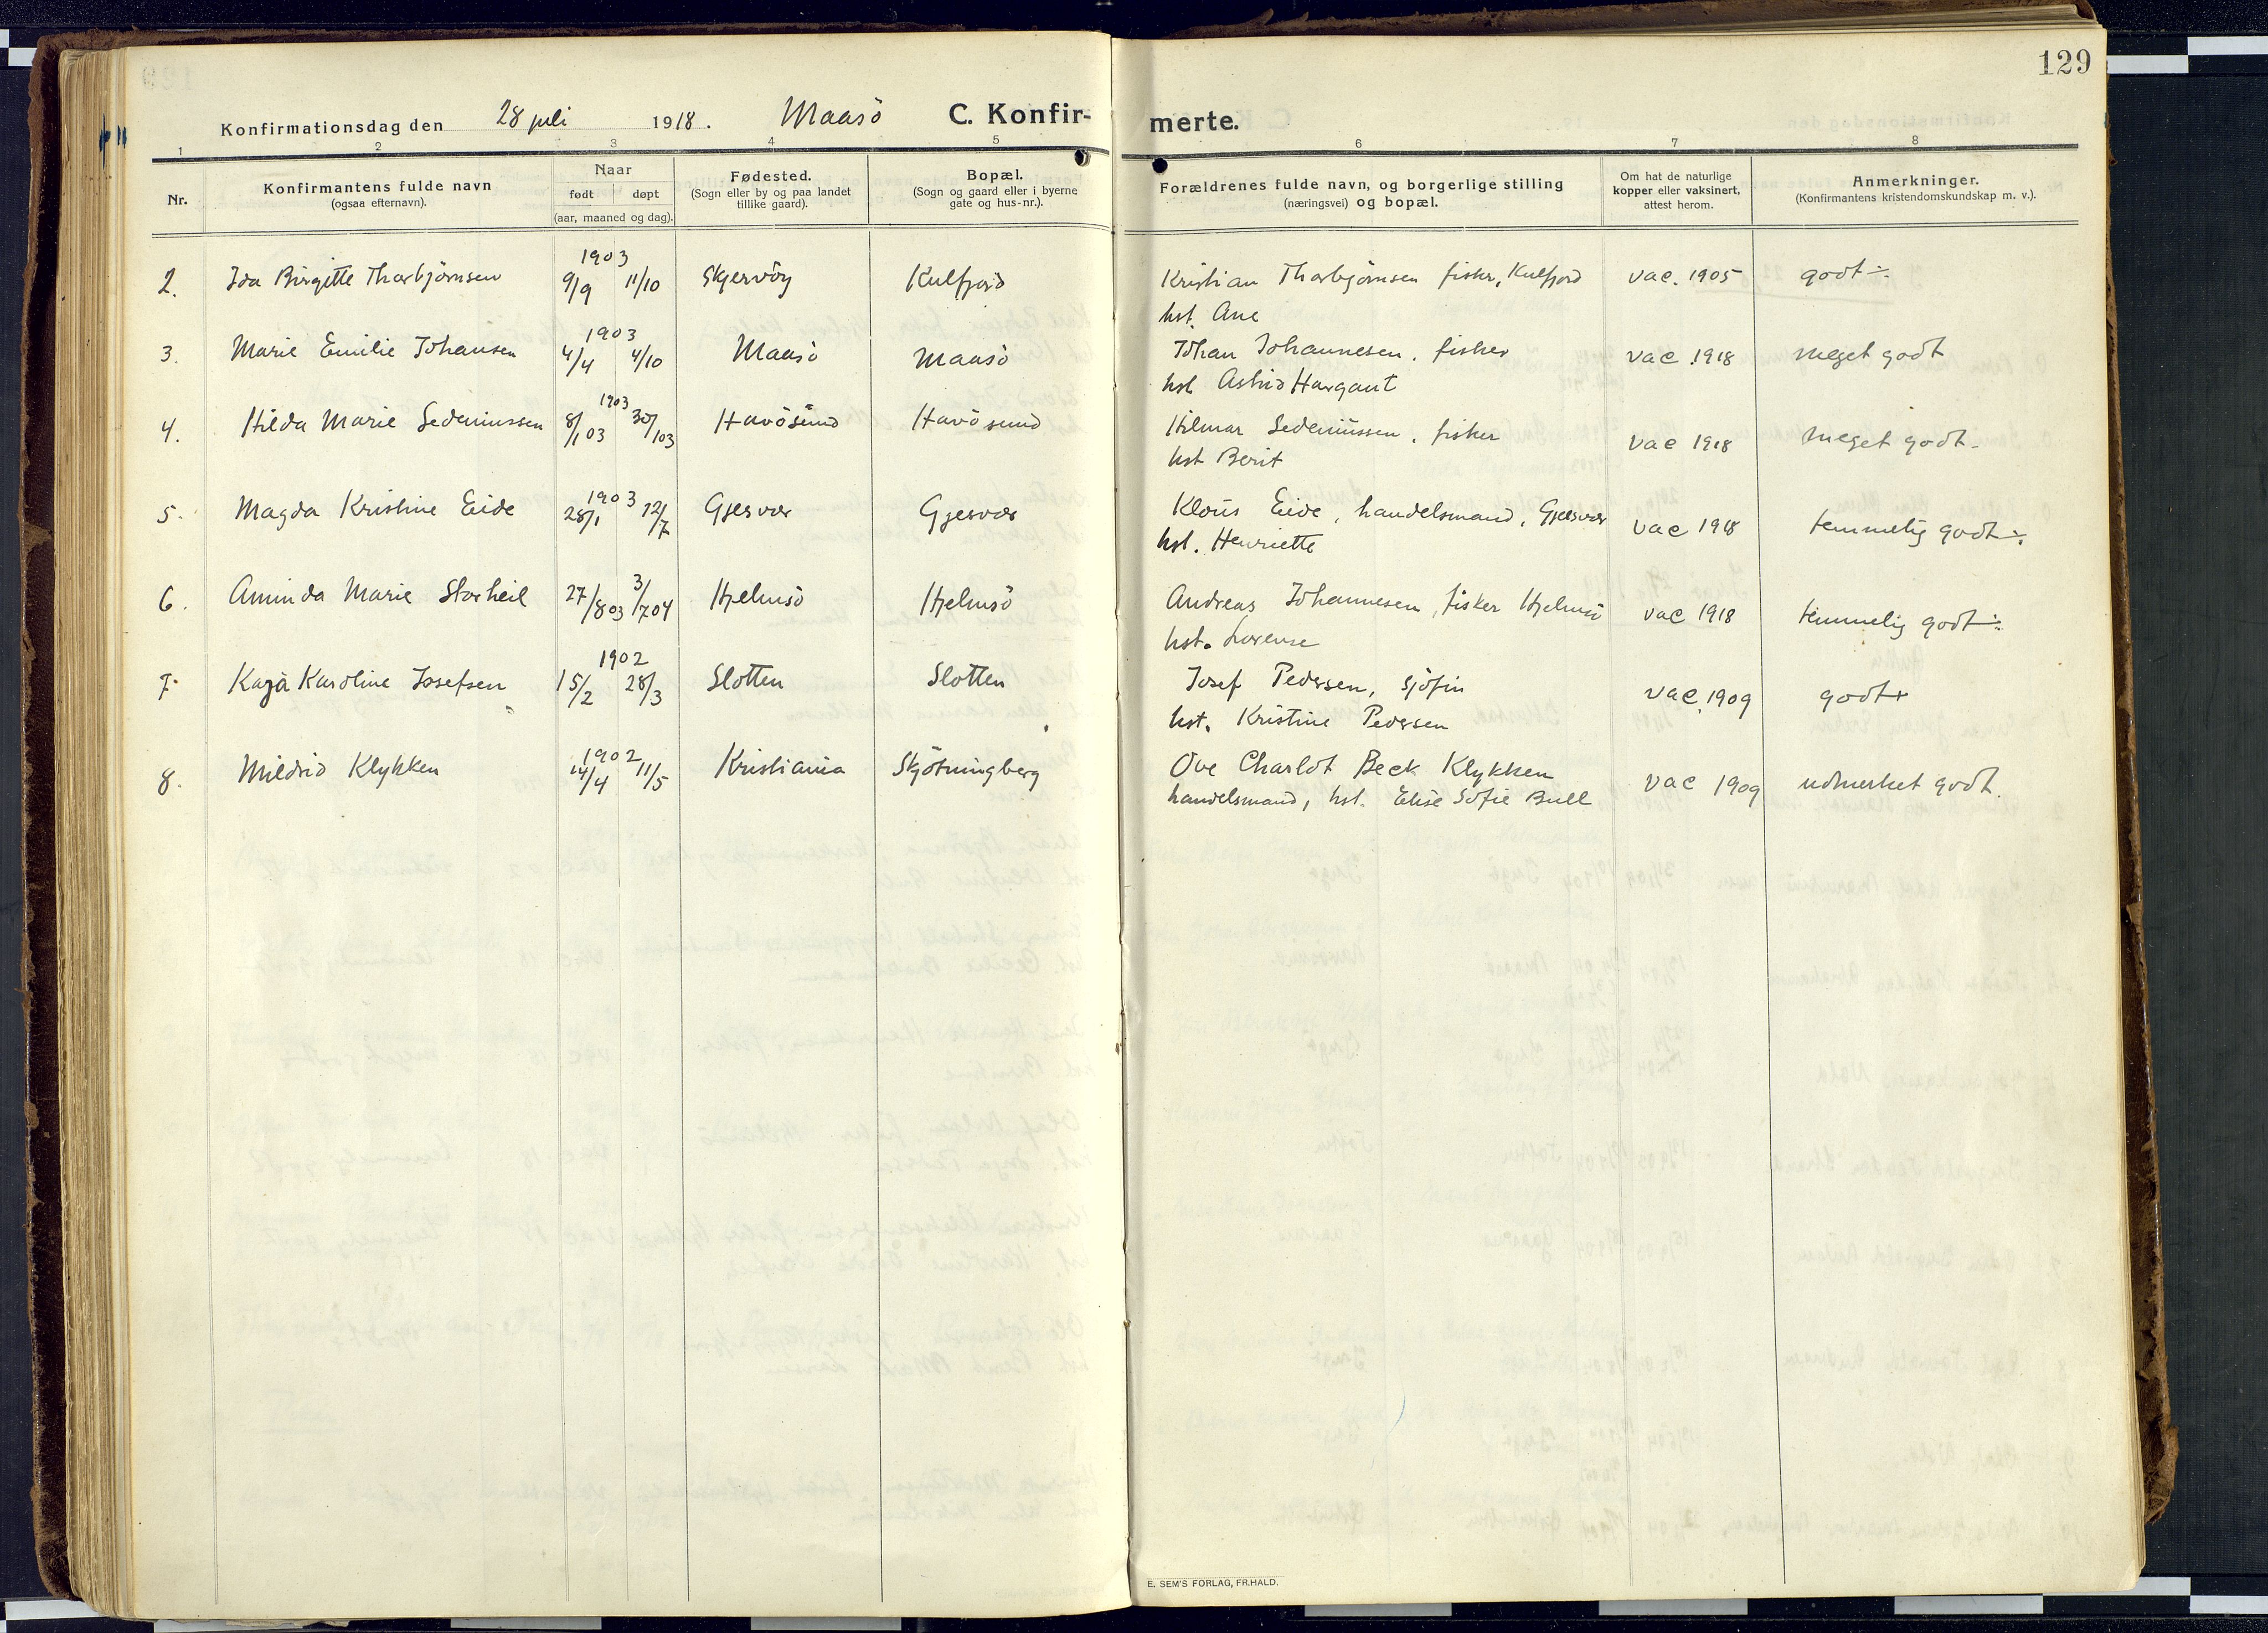 129
Konfirmationsdag den 28 juli 1918. Maasö C. Konfirmerte.
1 2 3 4 5 6 7 8
Nr. Konfirmantens fulde navn (ogsaa efternavn). Naar født døpt (aar, maaned og dag). Fødested. (Sogn eller by og paa landet tillike gaard). Bopæl. (Sogn og gaard eller i byerne gate og hus-nr.). Forældrenes fulde navn, og borgerlige stilling (næringsvei) og bopæl. Om hat de naturlige kopper eller vaksinert, attest herom. Anmerkninger. (Konfirmantens kristendomskundskap m. v.).
1903
2. Ida Birgitte Thorbjörnsen 9/9 11/10 Skjervöy Kulfjord Kristian Thorbjörnsen fisker, Kulfjord vac. 1905 godt÷
hst. Ane
1903
3. Marie Emilie Johansen 4/4 4/10 Maasö Maasö Johan Johannesen, fisker vac. 1918 meget godt
hst Astrid Hargaut
1903
4. Hilda Marie Sedeniussen 8/1 03 30/1 03 Havösund Havösund Hilmar Sedeniussen, fisker vac 1918 meget godt-
hst Berit
1903
5. Magda Kristine Eide 28/1 12/7 Gjesvær Gjesvær Klaus Eide, handelsmand, Gjesvær vac 1918 temmelig godt÷.
hst. Henriette
6. Aminda Marie Storheil 27/8 03 3/7 04 Hjelmsö Hjelmsö Andreas Johannesen, fisker Hjelmsö vac 1918 temmelig godt÷
hst. Lorense
1902
7. Kaja Karoline Josefsen 15/2 28/3 Slotten Slotten Josef Pedersen, sjöfin vac. 1909 godt+
hst. Kristine Pedersen
1902
8. Mildrid Klykken 14/4 11/5 Kristiania Skjötningberg Ove Charlot Beck Klykken vac 1909 udmerket godt.
handelsmand, hst. Elise Sofie Bull
E. SEM'S FORLAG, FR.HALD.